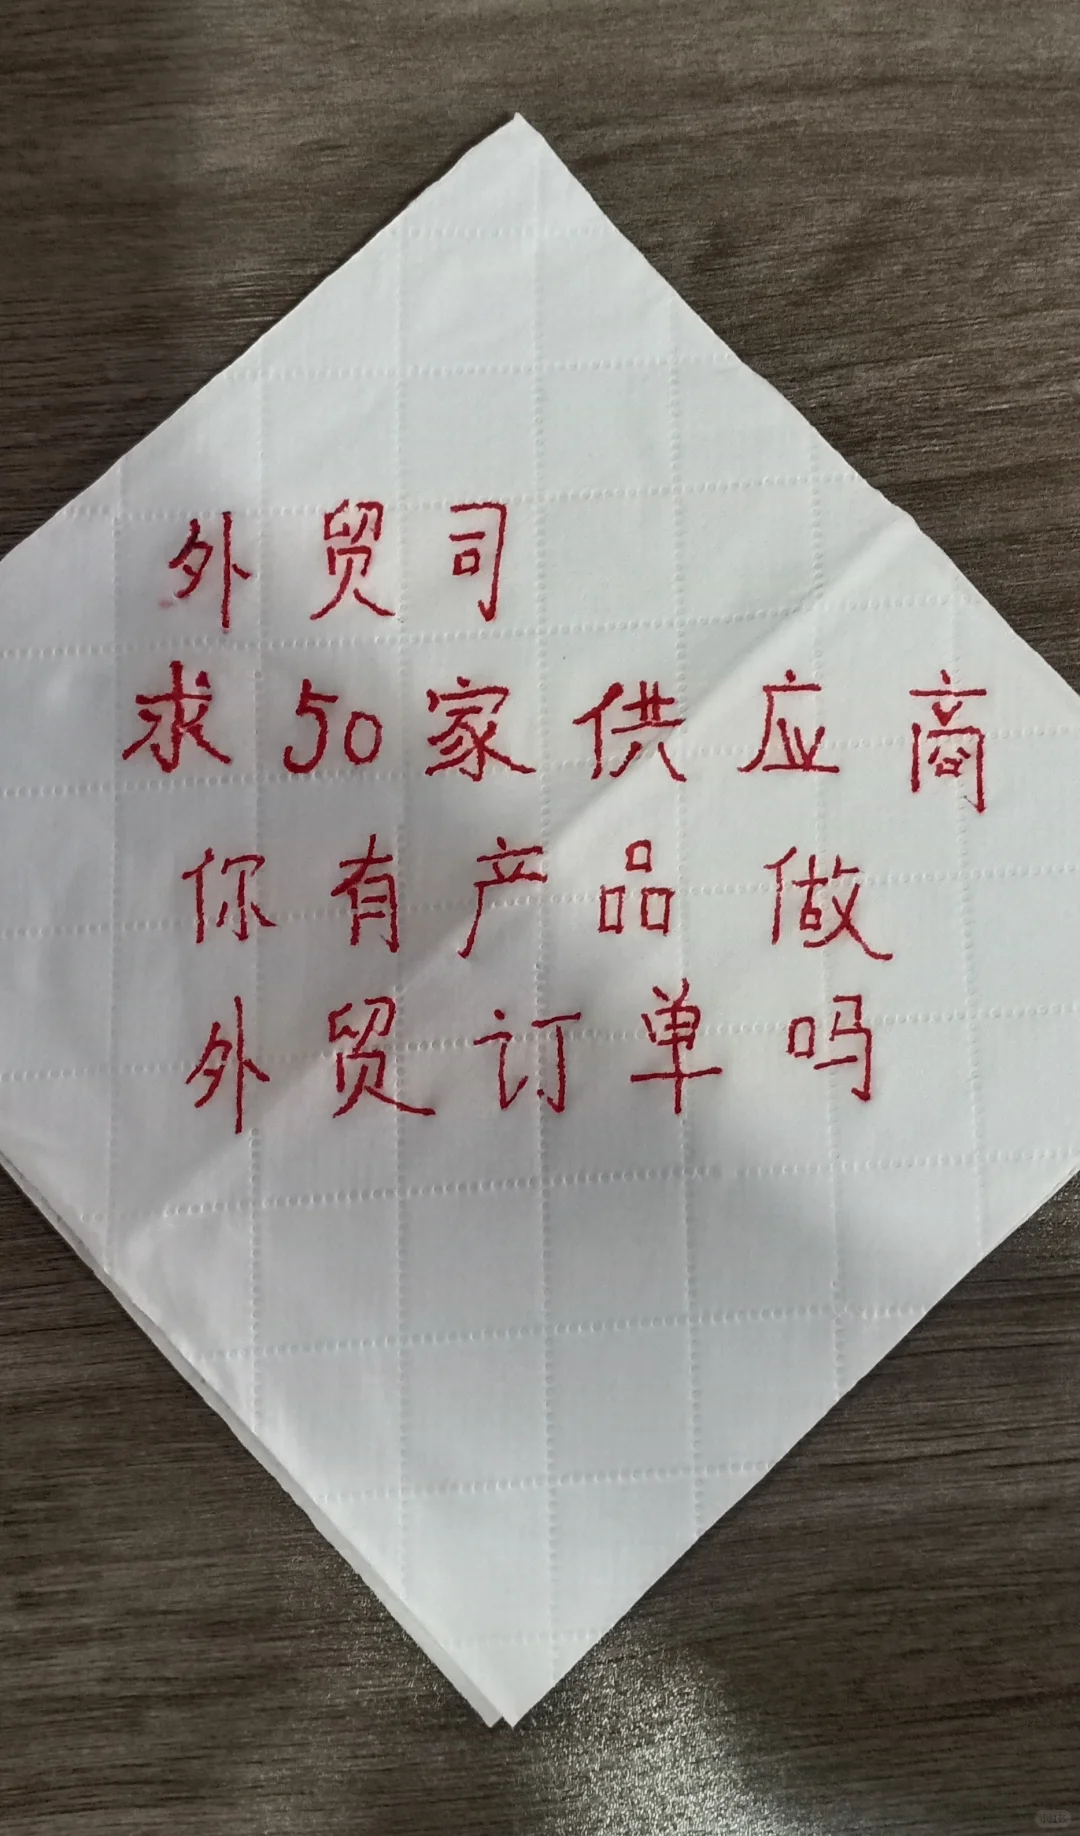 外贸司
求50家供应商
你有产品做
外贸订单吗